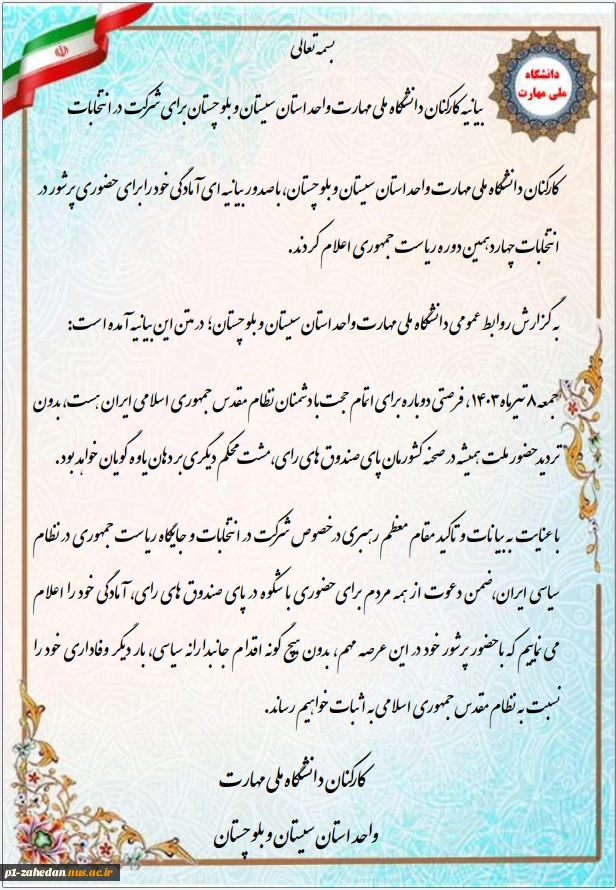 بسمه تعالی
دانشگاه
ملی مهارت
بیانیه کارکنان دانشگاه ملی مهارت واحد استان سیستان و بلوچستان برای شرکت در انتخابات
کارکنان دانشگاه ملی مهارت واحد استان سیستان و بلوچستان، با صدور بیانیه ای آمادگی خود را برای حضوری پرشور در
انتخابات چهاردهمین دوره ریاست جمهوری اعلام کردند.
به گزارش روابط عمومی دانشگاه ملی مهارت واحد استان سیستان و بلوچستان؛ در متن این بیانیه آمده است:
جمعه ۸ تیرماه ۱۴۰۳، فرصتی دوباره برای اتمام حجت با دشمنان نظام مقدس جمهوری اسلامی ایران هست، بدون
تردید حضور ملت همیشه در صحنه کشورمان پای صندوق های رای، مشت محکم دیگری بر دهان یاوه گویان خواهد بود.
با عنایت به بیانات و تاکید مقام معظم رهبری در خصوص شرکت در انتخابات و جایگاه ریاست جمهوری در نظام
سیاسی ایران، ضمن دعوت از همه مردم برای حضوری با شکوه در پای صندوق های رای، آمادگی خود را اعلام
می نماییم که با حضور پرشور خود در این عرصه مهم، بدون هیچ گونه اقدام جانبدارانه سیاسی، بار دیگر وفاداری خود را
نسبت به نظام مقدس جمهوری اسلامی به اثبات خواهیم رساند.
کارکنان دانشگاه ملی مهارت
واحد استان سیستان و بلوچستان
p1-zahedan.nus.ac.ir